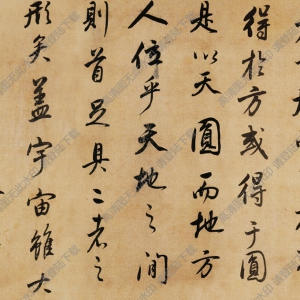 得於方或得于圓
是以天圓而地方
人位乎天地之間
則首足具二者之
形矣蓋宇宙雖大